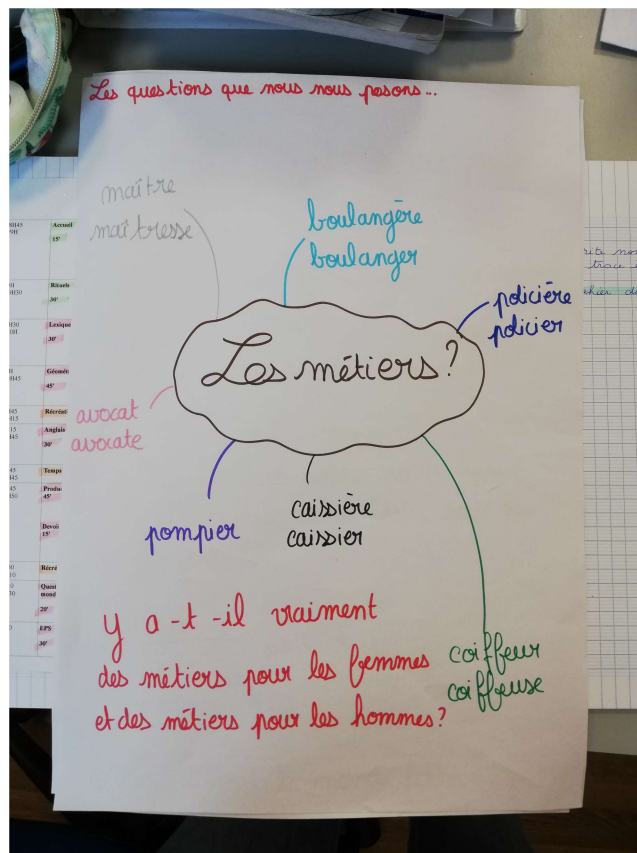 Les questions que nous nous posons...
maître
maîtresse
boulangère
boulanger
policière
policier
Les métiers?
avocat
avocate
pompier
caissière
caissier
coiffeur
coiffeuse
y a-t-il vraiment
des métiers pour les femmes
et des métiers pour les hommes?
Accueil
15'
Rituels
30'
Lexique
30'
45'
Anglais
30'
Temps
45'
15'
Récré
20'
EPS
30'